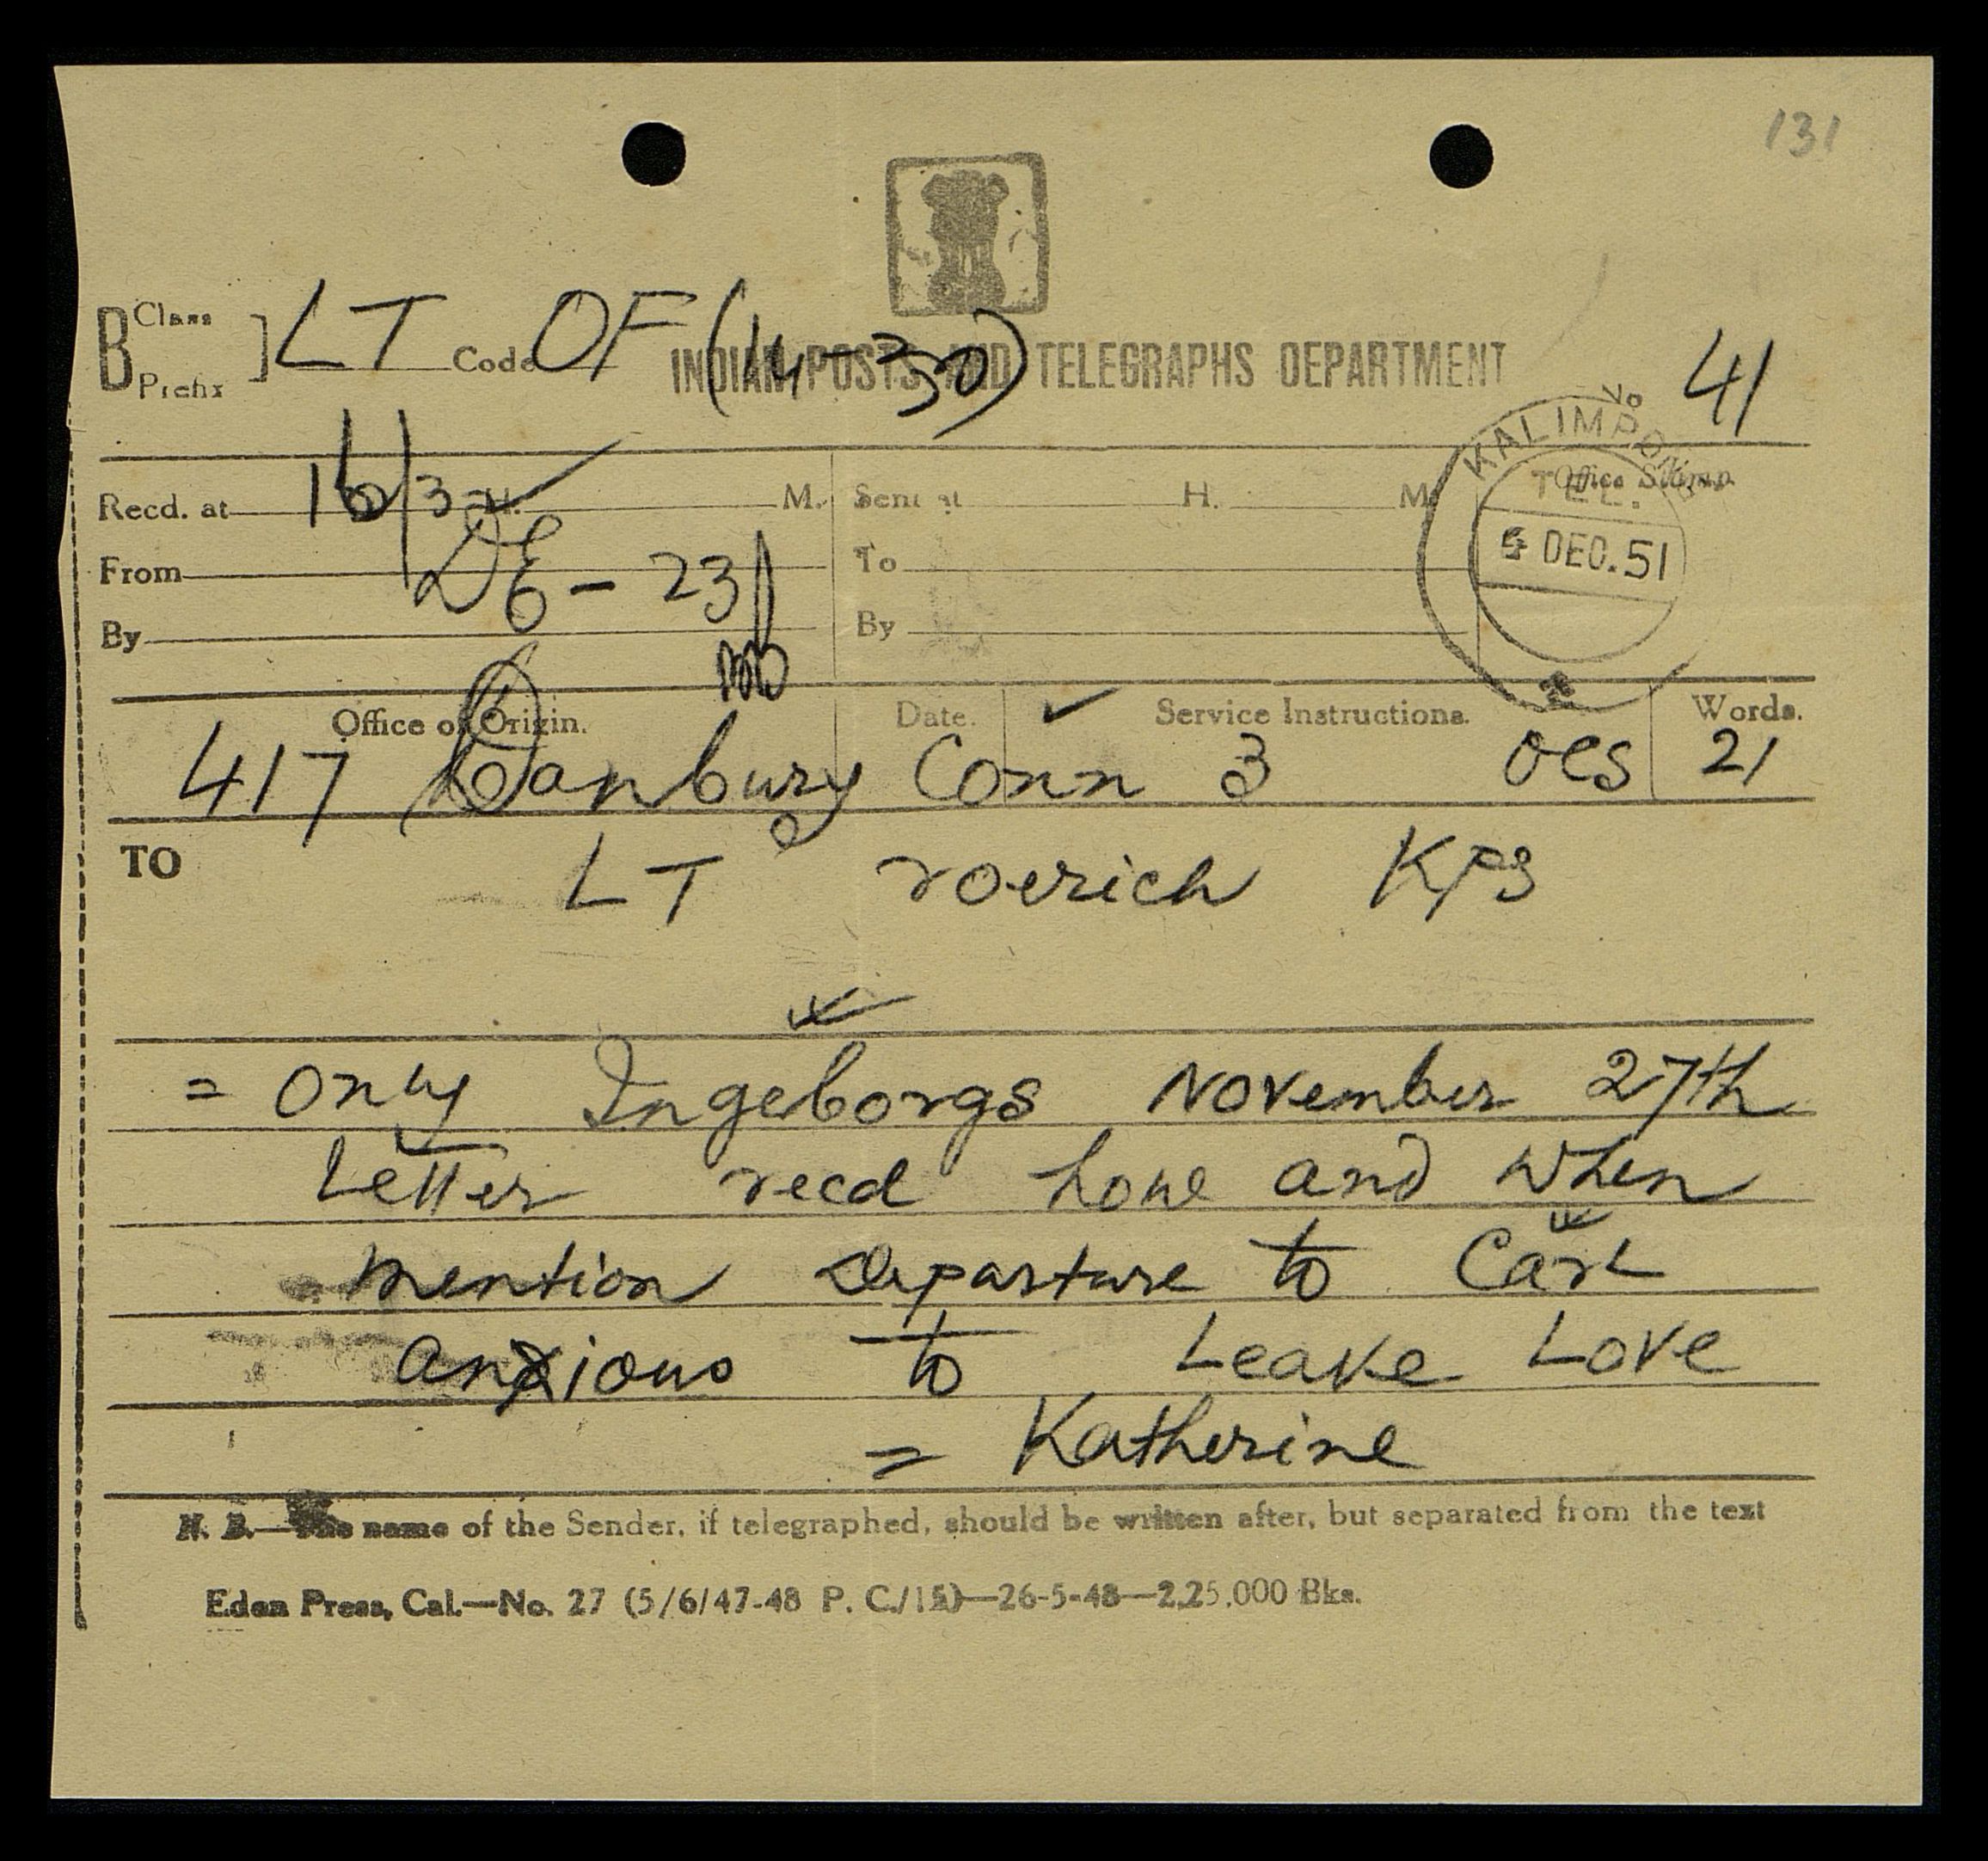 131
B Class Prefix ] LT Code OF (14-30)
INDIAN POSTS AND TELEGRAPHS DEPARTMENT
No 41
Recd. at 16/3 H. M. Sent at H. M. Office Stamp.
KALIMPONG
TEL.
DEC. 51
From DE - 23 To
By By
Office of Origin. Date. Service Instructions. Words.
417 Danbury Conn 3 OCS 21
TO
LT roerich KPS
= only Ingeborgs November 27th
Letter recd how and when
mention departure to Carl
anxious to Leave Love
= Katherine
N. B.—The name of the Sender, if telegraphed, should be written after, but separated from the text
Eden Press, Cal.—No. 27 (5/6/47-48 P. C./15)—26-5-48—2,25,000 Bks.